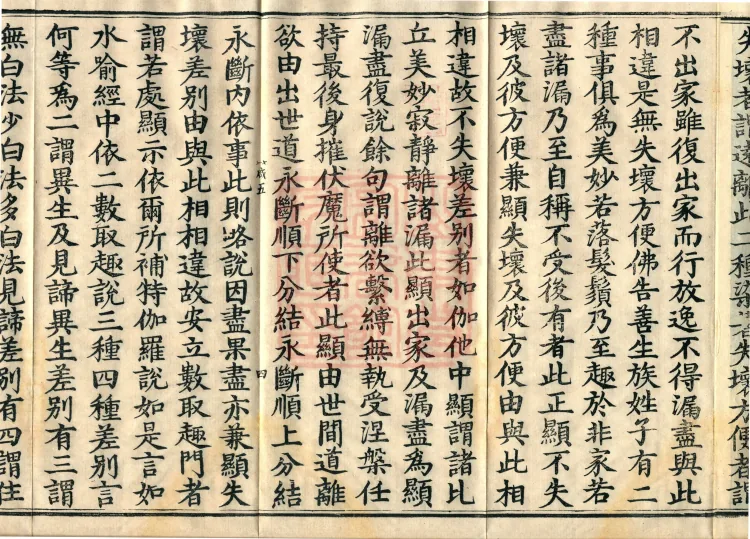 失壞者謂遠離此二種
失壞方便者謂
不出家雖復出家而行放逸不得漏盡與此
相違是無失壞方便佛告善生族姓子有二
種事俱為美妙若落髮鬚乃至趣於非家若
盡諸漏乃至自稱不受後有者此正顯不失
壞及彼方便兼顯失壞及彼方便由與此相
相違故不失壞差別者如伽他中顯謂諸比
丘美妙寂靜離諸漏此顯出家及漏盡為顯
漏盡復說餘句謂離欲繫縛無執受涅槃任
持最後身摧伏魔所使者此顯由世間道離
欲由出世道永斷順下分結永斷順上分結
永斷內依事此則略說因盡果盡亦兼顯失
壞差別由與此相相違故安立數取趣門者
謂若處顯示依爾所補特伽羅說如是言如
水喻經中依二數取趣說三種四種差別言
何等為二謂異生及見諦異生差別有三謂
無白法少白法多白法見諦差別有四謂住